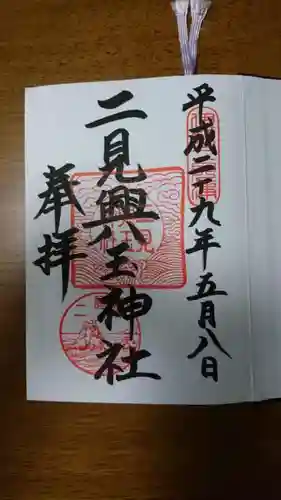 平成二十九年五月八日
二見興玉神社
奉拝